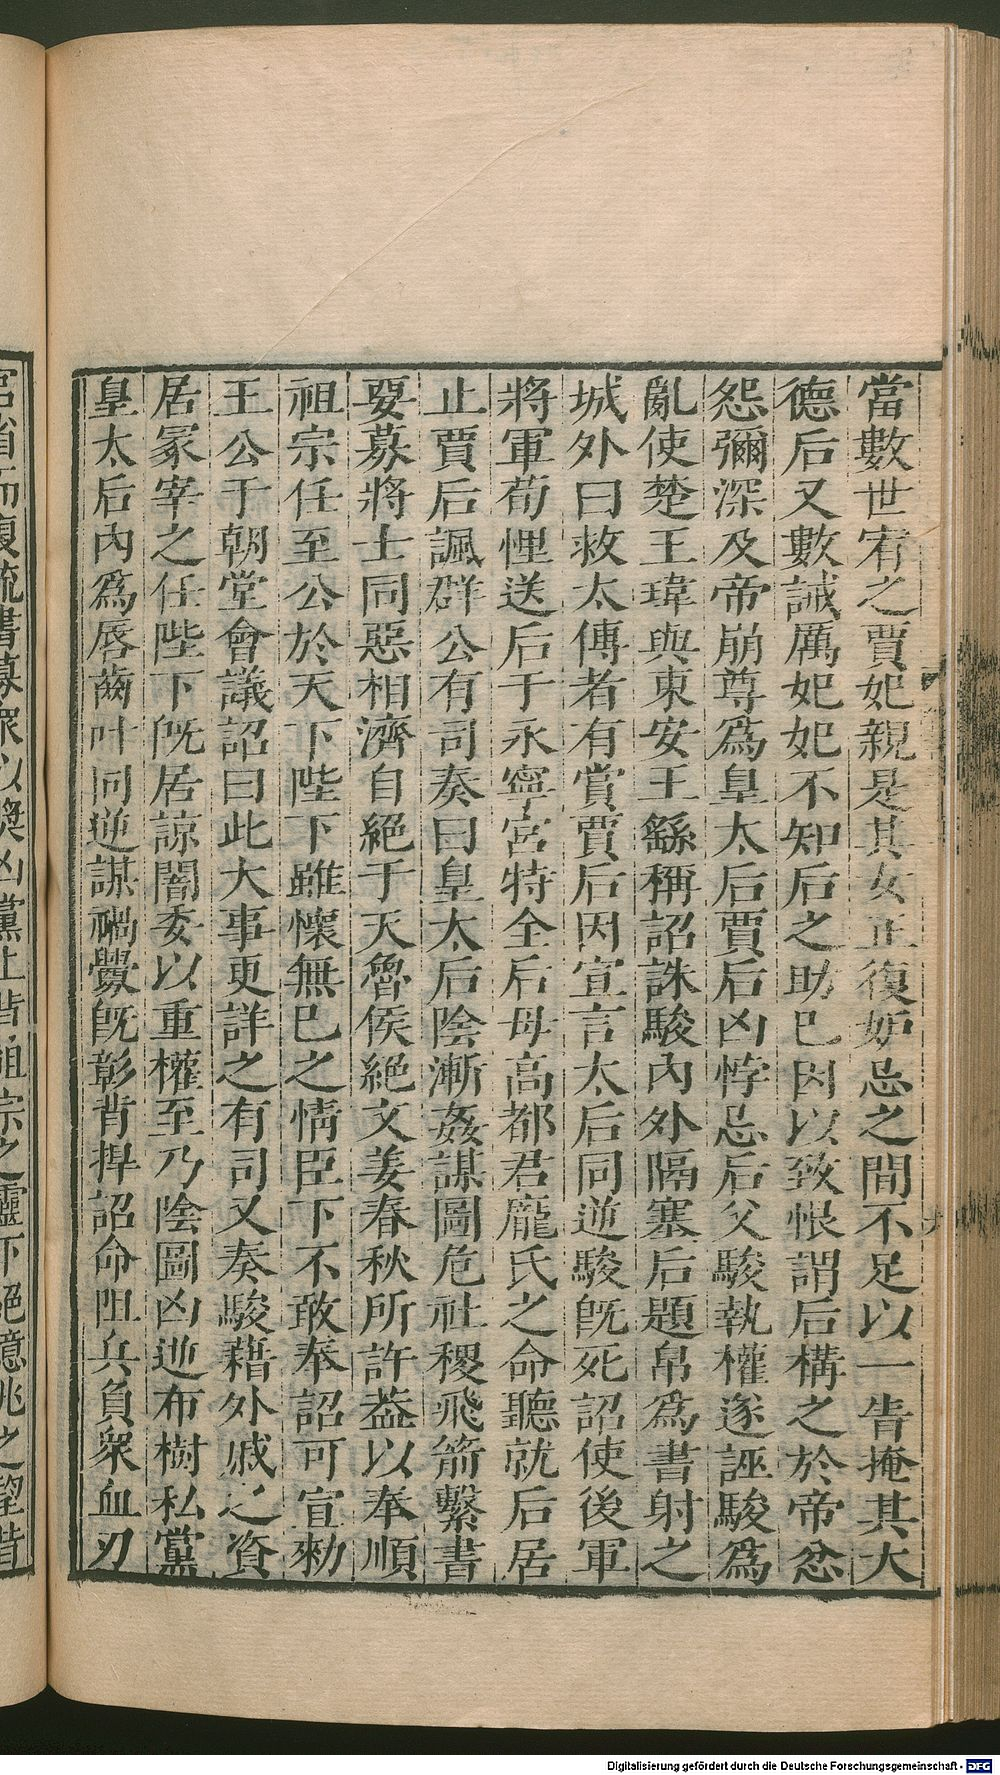 當數世宥之賈妃親是其女正復妒忌之間不足以一眚掩其大
德后又數誡厲妃妃不知后之助己因以致恨謂后構之於帝忿
怨彌深及帝崩尊爲皇太后賈后凶悖忌后父駿執權遂誣駿爲
亂使楚王瑋與東安王繇稱詔誅駿內外隔塞后題帛爲書射之
城外曰救太傅者有賞賈后因宣言太后同逆駿旣死詔使後軍
將軍荀悝送后于永寧宮特全后母高都君龐氏之命聽就后居
止賈后諷群公有司奏曰皇太后陰漸姦謀圖危社稷飛箭繫書
要募將士同惡相濟自絕于天魯侯絕文姜春秋所許葢以奉順
祖宗任至公於天下陛下雖懷無已之情臣下不敢奉詔可宣勑
王公于朝堂會議詔曰此大事更詳之有司又奏駿藉外戚之資
居冢宰之任陛下旣居諒闇委以重權至乃陰圖凶逆布樹私黨
皇太后內爲唇齒叶同逆謀禍釁旣彰背捍詔命阻兵負衆血刃
宮省而復流書募衆以奬凶黨上背祖宗之靈下絕億兆之望昔
Digitalisierung gefördert durch die Deutsche Forschungsgemeinschaft - DFG